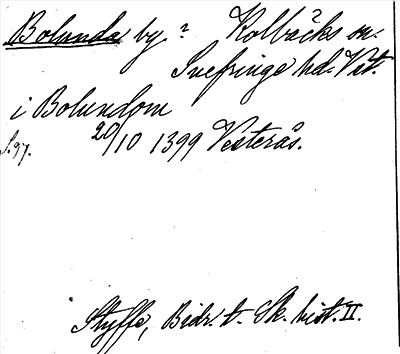 Bolunda by? Kolbäcks sn.
Snefringe hd. Vst.
i Bolundom
S. 97. 20/10 1399 Vesterås.
Styffe, Bidr. t. Sk. hist. II.